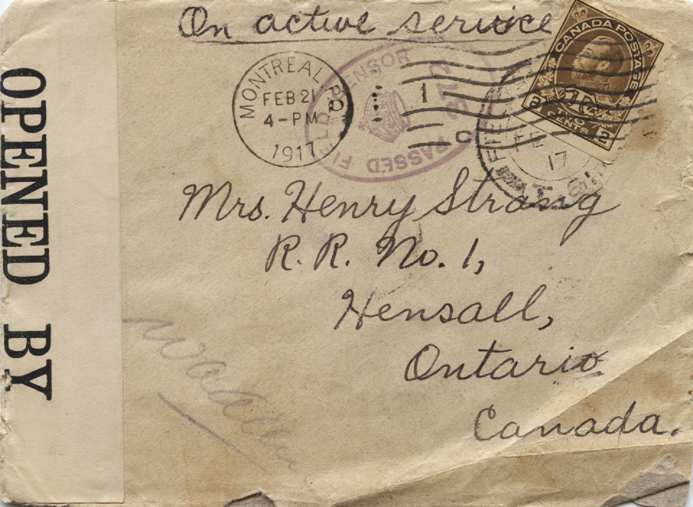 On active service
CANADA POSTAGE
2 CENTS 2
MONTREAL P.Q.
FEB 21
4 - PM
1917
PASSED FIELD CENSOR
1
C
17
Mrs. Henry Strong
R. R. No. 1,
Hensall,
Ontario
Canada.
OPENED BY